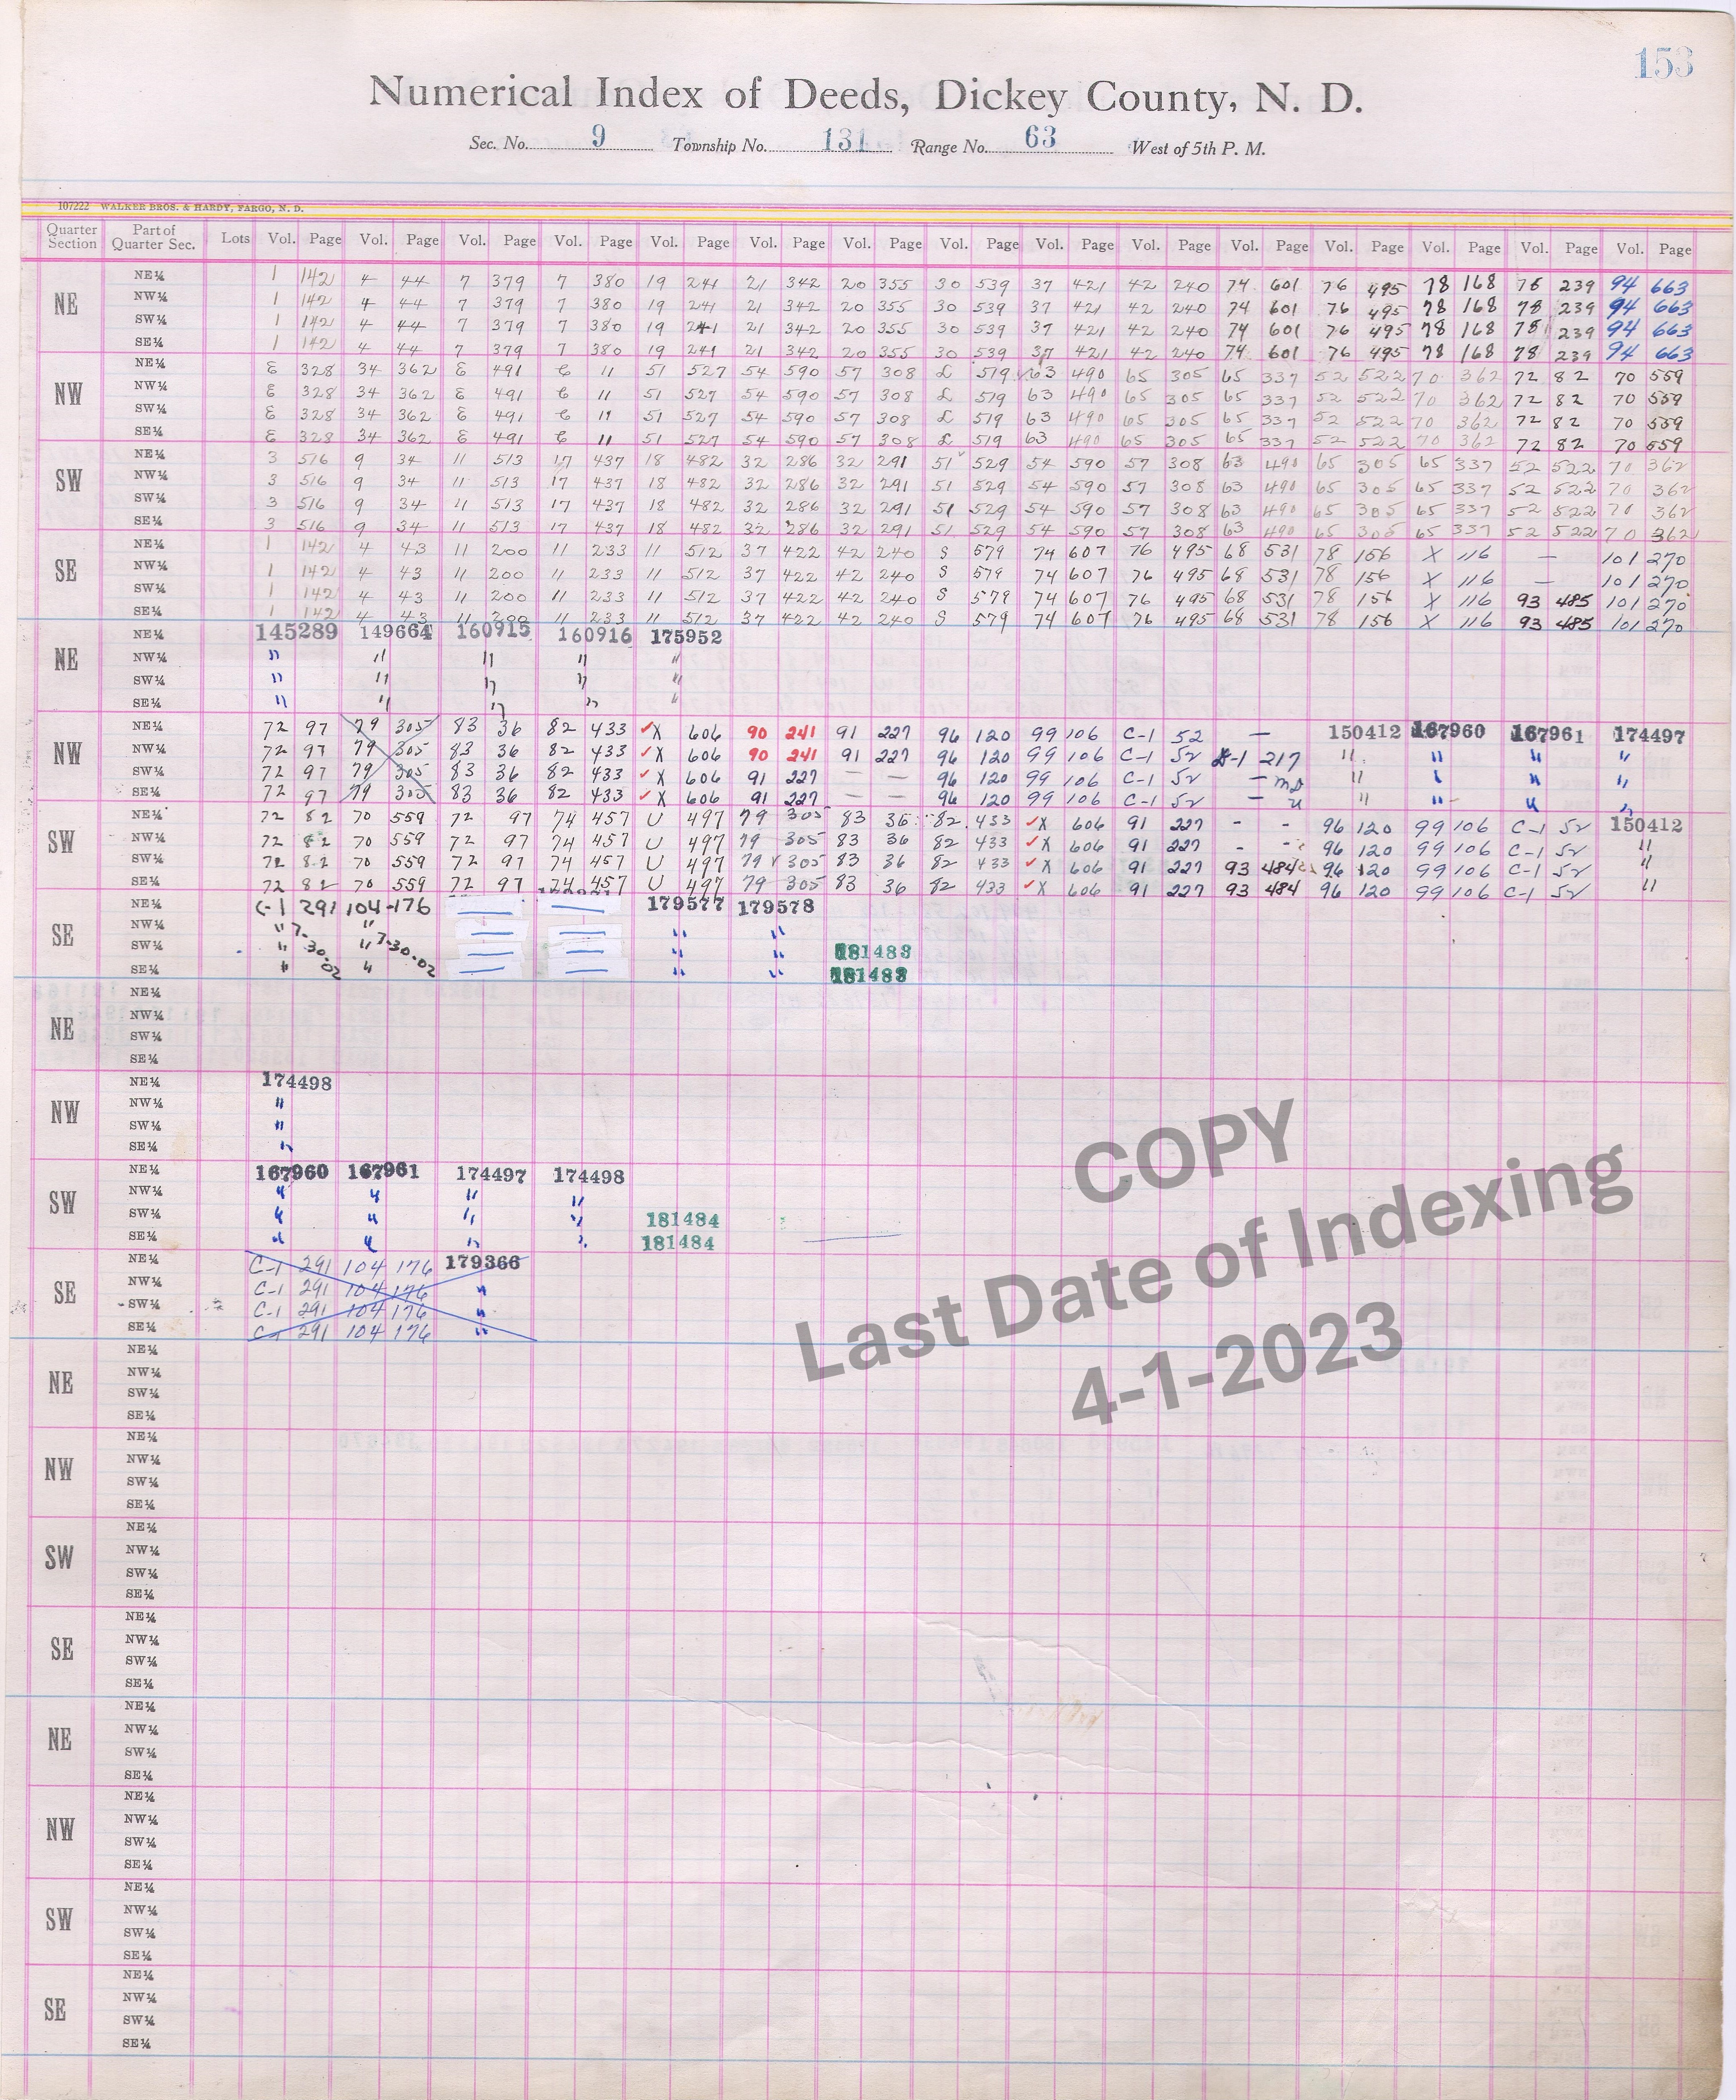 153
Numerical Index of Deeds, Dickey County, N. D.
Sec. No. 9 Township No. 131 Range No. 63 West of 5th P. M.
107222 WALKER BROS. & HARDY, FARGO, N. D.
Quarter Section Part of Quarter Sec. Lots Vol. Page Vol. Page Vol. Page Vol. Page Vol. Page Vol. Page Vol. Page Vol. Page Vol. Page Vol. Page Vol. Page Vol. Page Vol. Page Vol. Page Vol. Page
NE NE¼ 1 142 4 44 7 379 7 380 19 241 21 342 20 355 30 539 37 421 42 240 74 601 76 495 78 168 78 239 94 663
NW¼ 1 142 4 44 7 379 7 380 19 241 21 342 20 355 30 539 37 421 42 240 74 601 76 495 78 168 78 239 94 663
SW¼ 1 142 4 44 7 379 7 380 19 241 21 342 20 355 30 539 37 421 42 240 74 601 76 495 78 168 78 239 94 663
SE¼ 1 142 4 44 7 379 7 380 19 241 21 342 20 355 30 539 37 421 42 240 74 601 76 495 78 168 78 239 94 663
NW NE¼ E 328 34 362 E 491 11 51 527 54 590 57 308 L 519 63 490 65 305 65 337 52 522 70 362 72 82 70 559
NW¼ E 328 34 362 E 491 11 51 527 54 590 57 308 L 519 63 490 65 305 65 337 52 522 70 362 72 82 70 559
SW¼ E 328 34 362 E 491 11 51 527 54 590 57 308 L 519 63 490 65 305 65 337 52 522 70 362 72 82 70 559
SE¼ E 328 34 362 E 491 11 51 527 54 590 57 308 L 519 63 490 65 305 65 337 52 522 70 362 72 82 70 559
SW NE¼ 3 516 9 34 11 513 17 437 18 482 32 286 32 291 51 529 54 590 57 308 63 490 65 305 65 337 52 522 70 362
NW¼ 3 516 9 34 11 513 17 437 18 482 32 286 32 291 51 529 54 590 57 308 63 490 65 305 65 337 52 522 70 362
SW¼ 3 516 9 34 11 513 17 437 18 482 32 286 32 291 51 529 54 590 57 308 63 490 65 305 65 337 52 522 70 362
SE¼ 3 516 9 34 11 513 17 437 18 482 32 286 32 291 51 529 54 590 57 308 63 490 65 305 65 337 52 522 70 362
SE NE¼ 1 142 4 43 11 200 11 233 11 512 37 422 42 240 S 579 74 607 76 495 68 531 78 156 X 116 — 101 270
NW¼ 1 142 4 43 11 200 11 233 11 512 37 422 42 240 S 579 74 607 76 495 68 531 78 156 X 116 — 101 270
SW¼ 1 142 4 43 11 200 11 233 11 512 37 422 42 240 S 579 74 607 76 495 68 531 78 156 X 116 93 485 101 270
SE¼ 1 142 4 43 11 200 11 233 11 512 37 422 42 240 S 579 74 607 76 495 68 531 78 156 X 116 93 485 101 270
NE NE¼ 145289 149664 160915 160916 175952
NW¼ " " " " "
SW¼ " " " " "
SE¼ " " " " "
NW NE¼ 72 97 79 305 83 36 82 433 ✓X 606 90 241 91 227 96 120 99 106 C-1 52 — 150412 167960 167961 174497
NW¼ 72 97 79 305 83 36 82 433 ✓X 606 90 241 91 227 96 120 99 106 C-1 52 -1 217 " " " "
SW¼ 72 97 79 305 83 36 82 433 ✓X 606 91 227 — — 96 120 99 106 C-1 52 — " " " "
SE¼ 72 97 79 305 83 36 82 433 ✓X 606 91 227 — — 96 120 99 106 C-1 52 — " " " " "
SW NE¼ 72 82 70 559 72 97 74 457 U 497 79 305 83 36 82 433 ✓X 606 91 227 - - 96 120 99 106 C-1 52 150412
NW¼ 72 82 70 559 72 97 74 457 U 497 79 305 83 36 82 433 ✓X 606 91 227 - - 96 120 99 106 C-1 52 "
SW¼ 72 82 70 559 72 97 74 457 U 497 79 305 83 36 82 433 ✓X 606 91 227 93 484 96 120 99 106 C-1 52 "
SE¼ 72 82 70 559 72 97 74 457 U 497 79 305 83 36 82 433 ✓X 606 91 227 93 484 96 120 99 106 C-1 52 "
SE NE¼ C-1 291 104-176 — — 179577 179578
NW¼ " " — — " "
SW¼ " 7-30-02 " 7-30-02 — — " " 181483
SE¼ " " — — " " 181483
NE NE¼
NW¼
SW¼
SE¼
NW NE¼ 174498
NW¼ "
SW¼ "
SE¼ "
SW NE¼ 167960 167961 174497 174498
NW¼ " " " "
SW¼ " " " " 181484
SE¼ " " " " 181484
SE NE¼ C-1 291 104 176 179366
NW¼ C-1 291 104 176 "
SW¼ C-1 291 104 176 "
SE¼ C-1 291 104 176 "
COPY
Last Date of Indexing
4-1-2023
NE NE¼
NW¼
SW¼
SE¼
NW NE¼
NW¼
SW¼
SE¼
SW NE¼
NW¼
SW¼
SE¼
SE NE¼
NW¼
SW¼
SE¼
NE NE¼
NW¼
SW¼
SE¼
NW NE¼
NW¼
SW¼
SE¼
SW NE¼
NW¼
SW¼
SE¼
SE NE¼
NW¼
SW¼
SE¼